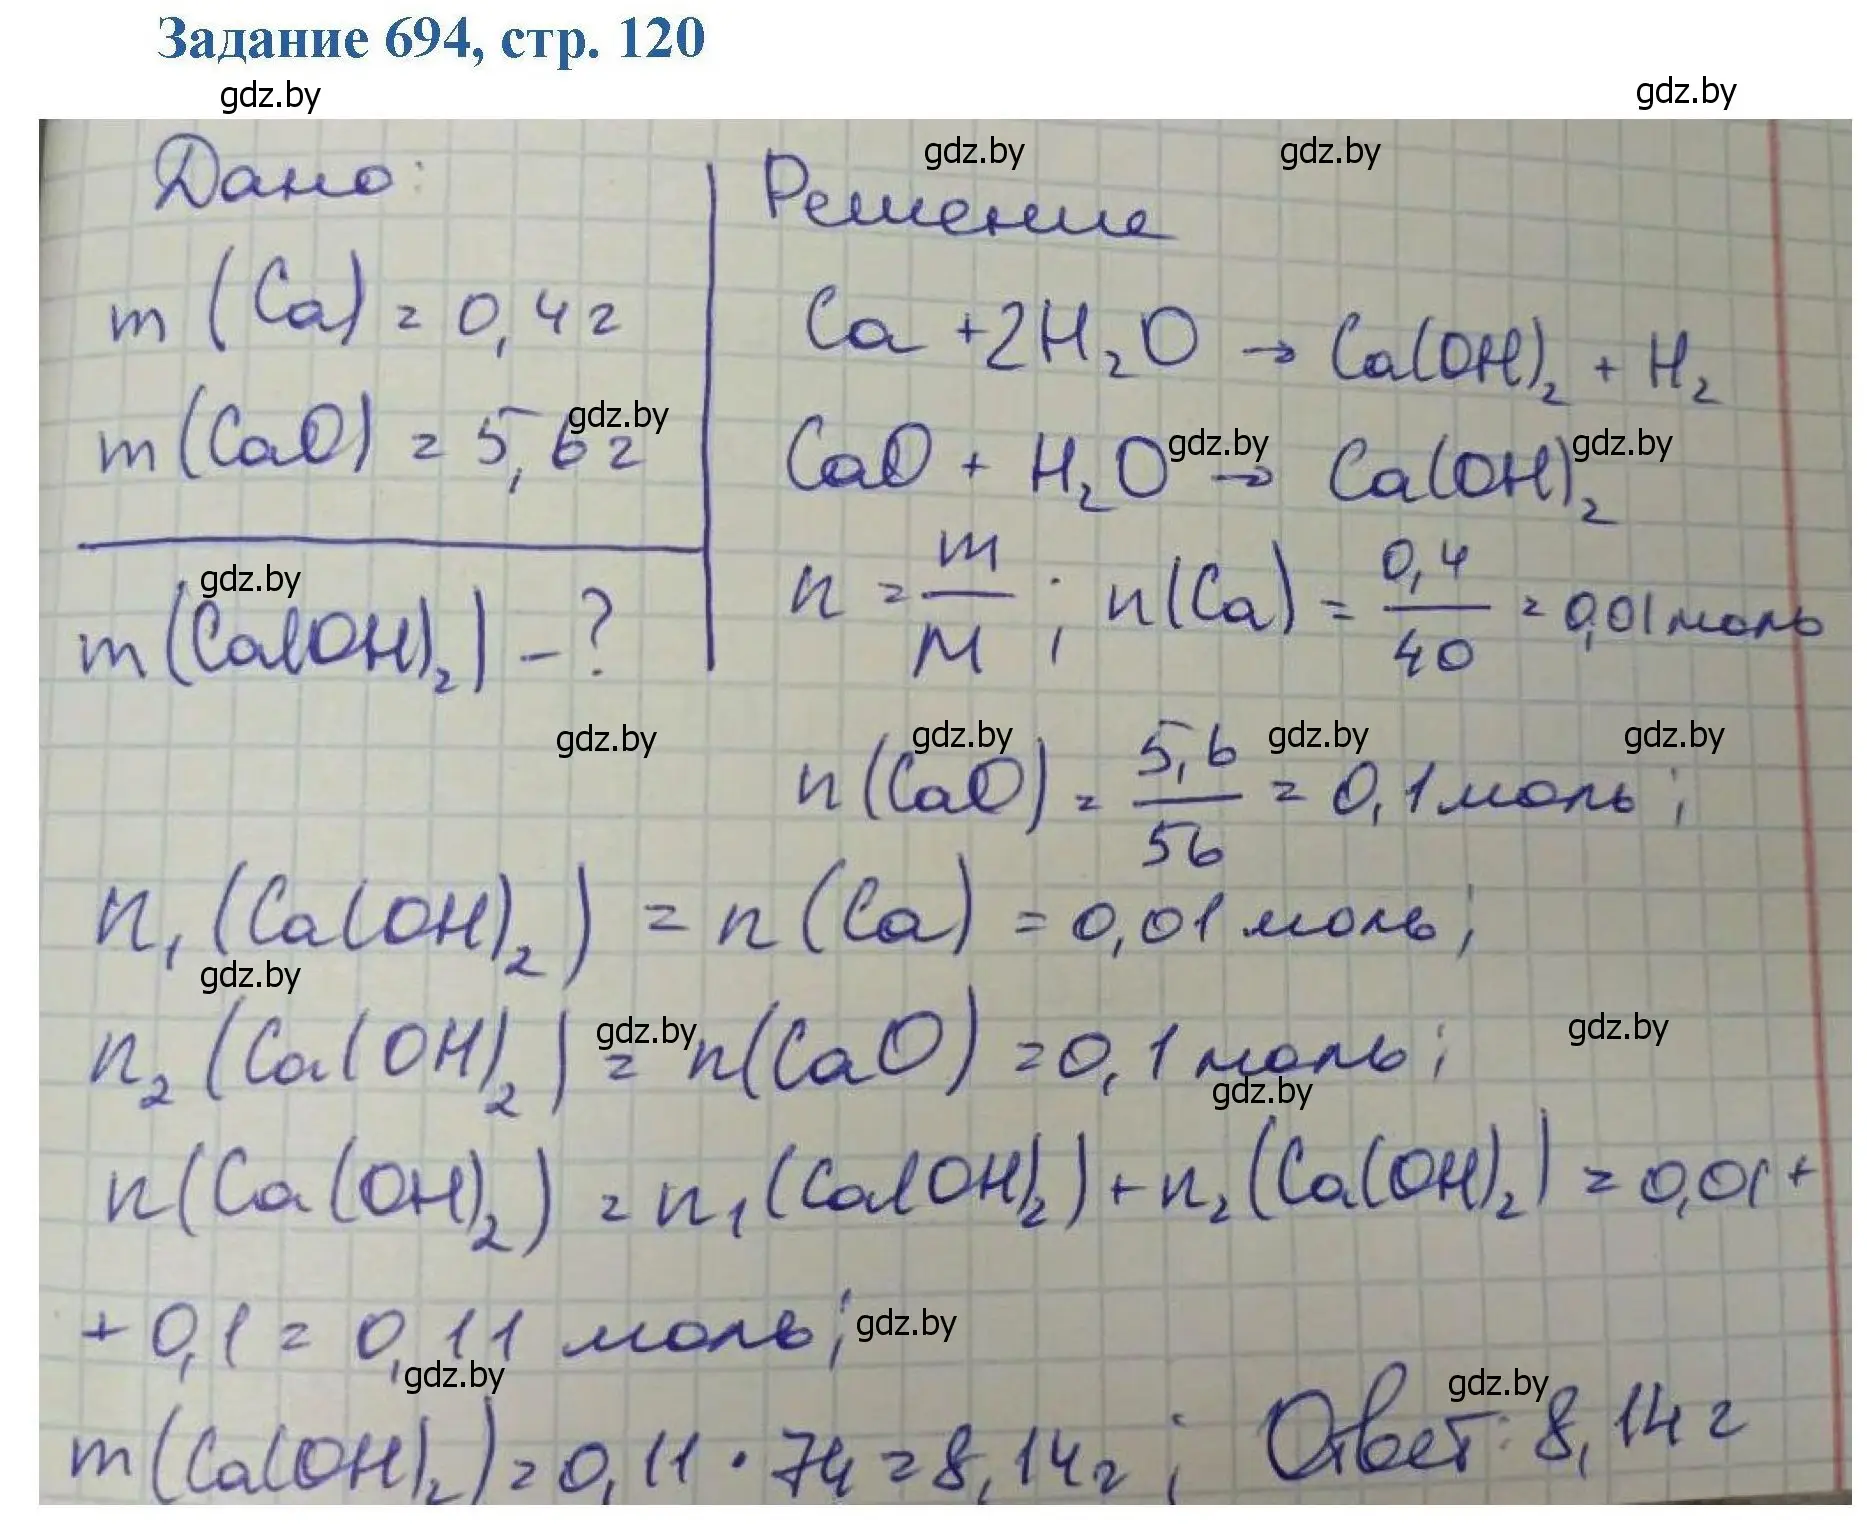 Задание 694, стр. 120
gdz.by gdz.by
gdz.by gdz.by
Дано: Решение
m (Ca) = 0,4 г Ca + 2H₂O → Ca(OH)₂ + H₂
gdz.by gdz.by gdz.by
m (CaO) = 5,6 г CaO + H₂O → Ca(OH)₂
gdz.by
m(Ca(OH)₂) – ? n = m/M ; n(Ca) = 0,4/40 = 0,01 моль
gdz.by gdz.by gdz.by gdz.by
n(CaO) = 5,6/56 = 0,1 моль ;
n₁ (Ca(OH)₂) = n (Ca) = 0,01 моль ;
gdz.by
n₂ (Ca(OH)₂) = n(CaO) = 0,1 моль ;
gdz.by gdz.by
gdz.by
n(Ca(OH)₂) = n₁ (Ca(OH)₂) + n₂ (Ca(OH)₂) = 0,01 +
+ 0,1 = 0,11 моль ;
gdz.by
gdz.by gdz.by
m (Ca(OH)₂) = 0,11 · 74 = 8,14 г ; Ответ: 8,14 г